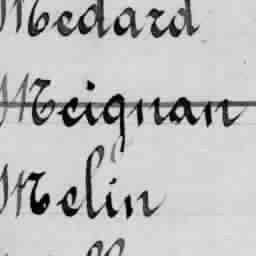 Medard
Meignan
Melin